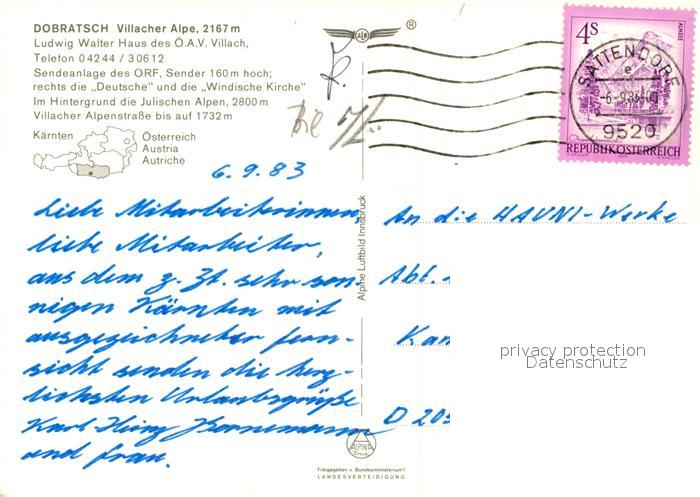 DOBRATSCH Villacher Alpe, 2167 m
Ludwig Walter Haus des Ö.A.V. Villach,
Telefon 04244 / 30612
Sendeanlage des ORF, Sender 160 m hoch;
rechts die „Deutsche" und die „Windische Kirche"
Im Hintergrund die Julischen Alpen, 2800 m
Villacher Alpenstraße bis auf 1732 m
Kärnten
Österreich
Austria
Autriche
®
4S
ALMSEE
SATTENDORF
9520
REPUBLIK ÖSTERREICH
6.9.83
Liebe Mitarbeiterinnen,
liebe Mitarbeiter,
aus dem z. Zt. sehr son-
nigen Kärnten mit
ausgezeichneter Fern-
sicht senden die herz-
lichsten Urlaubsgrüße
Karl-Heinz
und Frau.
Alpine Luftbild Innsbruck
ALPINA
Druck
Freigegeben v. Bundesministerium f.
LANDESVERTEIDIGUNG
An die HAUNI-Werke
Abt.
Kam
D 205
privacy protection
Datenschutz